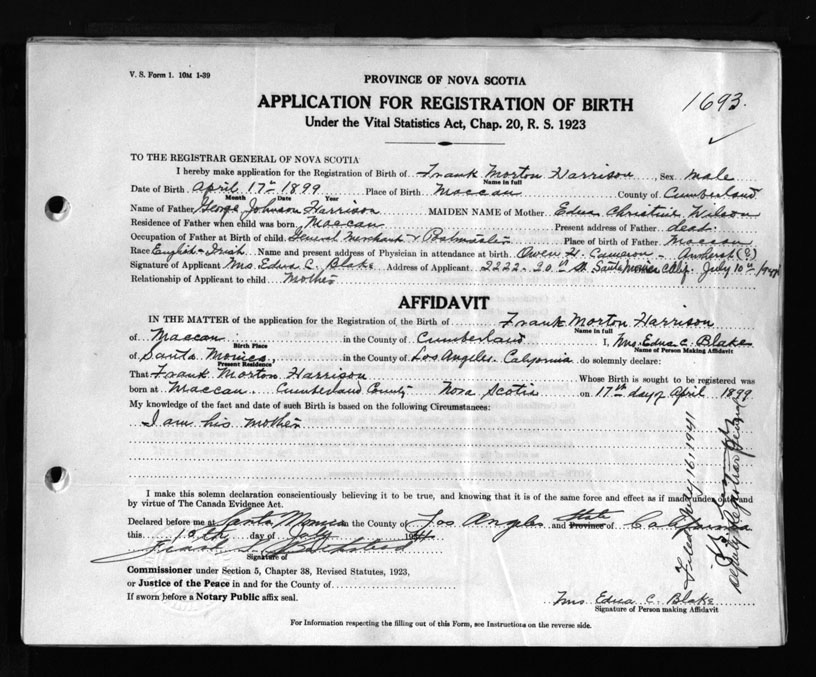 V. S. Form 1. 10M 1-39
PROVINCE OF NOVA SCOTIA
1693.
APPLICATION FOR REGISTRATION OF BIRTH
Under the Vital Statistics Act, Chap. 20, R. S. 1923
TO THE REGISTRAR GENERAL OF NOVA SCOTIA
I hereby make application for the Registration of Birth of Frank Morton Harrison Sex male
Name in full
Date of Birth April 17th 1899 Place of Birth Maccan County of Cumberland
Month Date Year
Name of Father George Johnson Harrison MAIDEN NAME of Mother Edna Christine Wilson
Residence of Father when child was born, Maccan Present address of Father dead.
Occupation of Father at Birth of child. General Merchant & Postmaster Place of birth of Father Maccan
Race English-Irish Name and present address of Physician in attendance at birth Owen H. Cameron - Amherst (?)
Signature of Applicant Mrs. Edna C. Blake Address of Applicant 2222-20th St. Santa Monica Calif. July 10th
Relationship of Applicant to child Mother
AFFIDAVIT
IN THE MATTER of the application for the Registration of the Birth of Frank Morton Harrison
Name in full
of Maccan in the County of Cumberland I, Mrs. Edna C. Blake
Birth Place Name of Person Making Affidavit
of Santa Monica, in the County of Los Angeles California do solemnly declare:
Present Residence
That Frank Morton Harrison Whose Birth is sought to be registered was
born at Maccan Cumberland County Nova Scotia on 17th day of April 1899
My knowledge of the fact and date of such Birth is based on the following Circumstances:
I am his mother
I make this solemn declaration conscientiously believing it to be true, and knowing that it is of the same force and effect as if made under oath and
by virtue of The Canada Evidence Act.
Declared before me at Santa Monica in the County of Los Angeles and State Province of California
this 10th day of July 1941
Signature of
Commissioner under Section 5, Chapter 38, Revised Statutes, 1923,
or Justice of the Peace in and for the County of
If sworn before a Notary Public affix seal.
Mrs Edna C. Blake
Signature of Person making Affidavit
For Information respecting the filling out of this Form, see Instructions on the reverse side.
Filed July 16, 1941
Deputy Registrar General